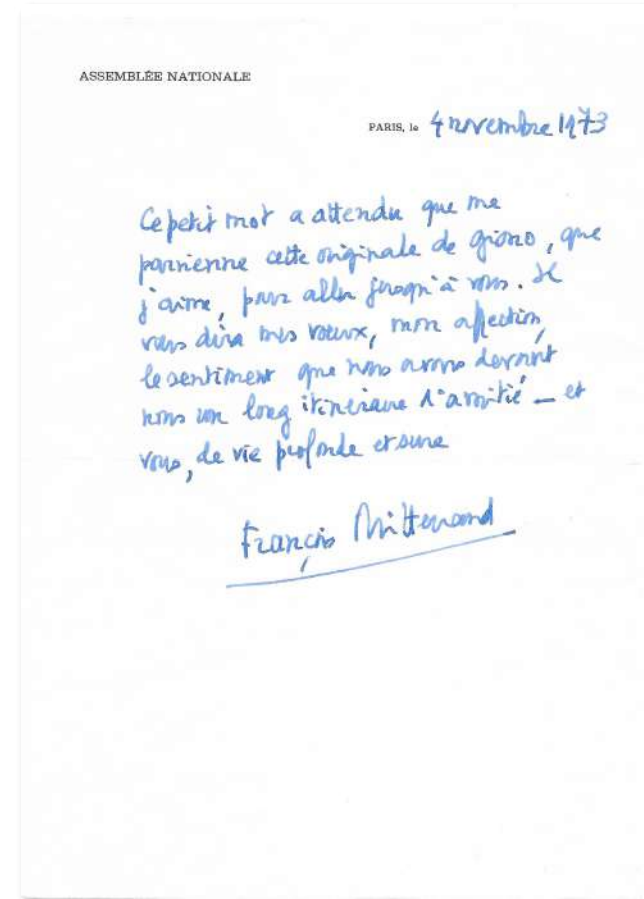 ASSEMBLÉE NATIONALE
PARIS, le 4 novembre 1973
Ce petit mot a attendu que me
parvienne cette originale de giono, que
j'aime, pour aller jusqu'à vous. Il
vous dira mes vœux, mon affection,
le sentiment que nous avons devant
nous un long itinéraire d'amitié — et
vous, de vie profonde et sûre
François Mitterrand